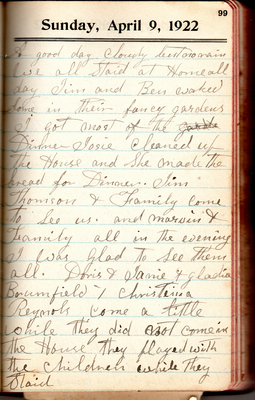 99
Sunday, April 9, 1922
A good day Cloudy but no rain
we all Staid at Home all
day Jim and Ben waked
some in their fancy gardens
I got most of the
Dinner Josie Cleaned up
the House and She made the
bread for Dinner. Jim
Thomson & Family come
to See us. and marvin &
Family all in the evening
I was Glad to See them
all. Doris & Janie & gladia
Brumfield & Christena
Reynols come a little
while they did not come in
the House they played with
the children while they
Staid